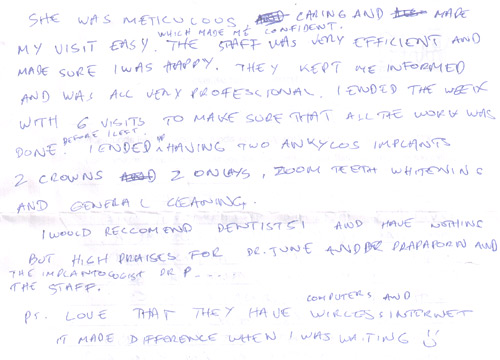 SHE WAS METICULOUS CARING AND MADE
WHICH MADE ME CONFIDENT.
MY VISIT EASY. THE STAFF WAS VERY EFFICIENT AND
MADE SURE I WAS HAPPY. THEY KEPT ME INFORMED
AND WAS ALL VERY PROFESSIONAL. I ENDED THE WEEK
WITH 6 VISITS TO MAKE SURE THAT ALL THE WORK WAS
BEFORE I LEFT.
DONE. I ENDED UP HAVING TWO ANKYLOS IMPLANTS
2 CROWNS 2 ONLAYS, ZOOM TEETH WHITENING
AND GENERAL CLEANING.
I WOULD RECCOMEND DENTIST SI AND HAVE NOTHING
BUT HIGH PRAISES FOR DR. JUNE AND DR PRAPAPORN AND
THE IMPLANTOLOGIST DR P.....
THE STAFF.
COMPUTERS AND
PS. LOVE THAT THEY HAVE WIRELESS INTERNET
IT MADE DIFFERENCE WHEN I WAS WAITING